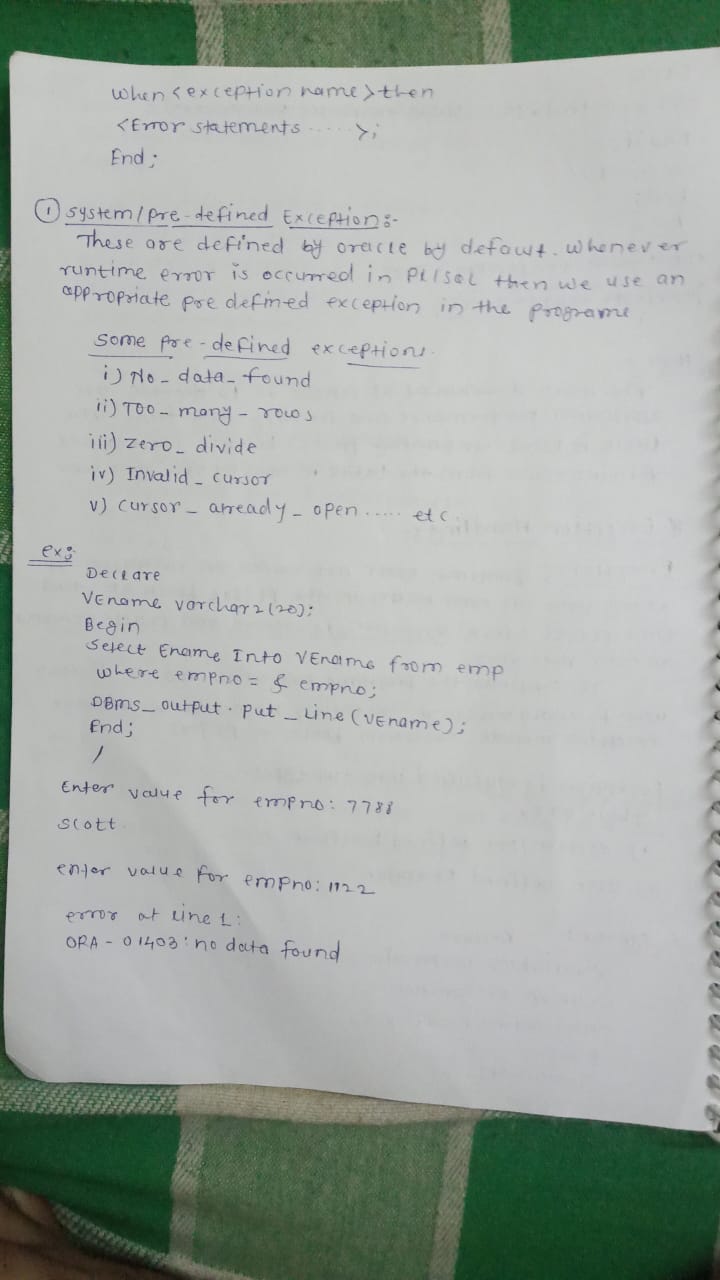 when <exception name> then
<Error statements ..... >;
End;
① system/pre-defined Exception:-
These are defined by oracle by default. whenever
runtime error is occurred in PL/SQL then we use an
appropriate pre defined exception in the programe
Some pre-defined exceptions.
i) No_data_found
ii) Too_many_rows
iii) zero_divide
iv) Invalid_cursor
v) cursor_already_open ..... etc.
ex:
Declare
VEname varchar2(20);
Begin
Select Ename Into VEname from emp
where empno = & empno;
DBMS_output.put_line(VEname);
End;
/
Enter value for empno: 7788
Scott
enter value for empno: 1122
error at line 1:
ORA-01403: no data found